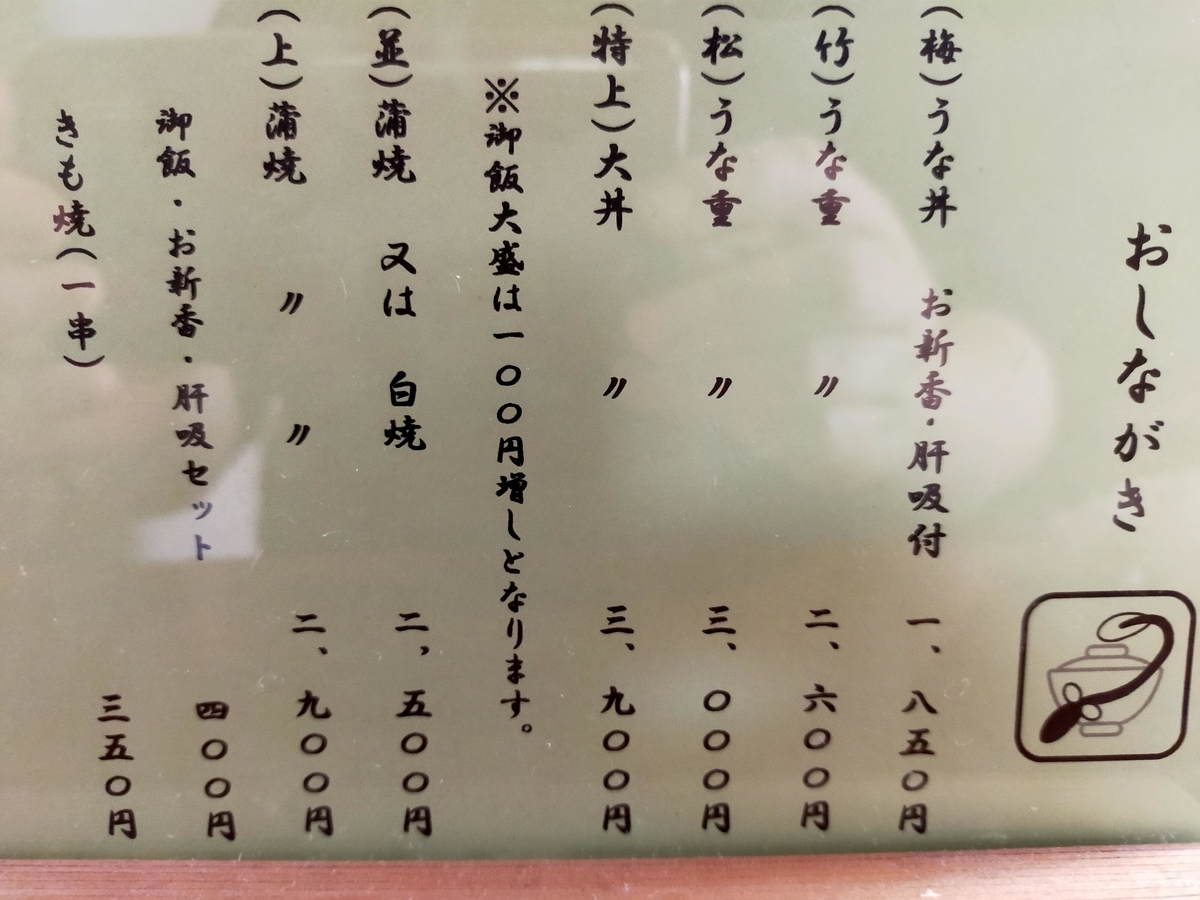 おしながき
（梅）うな丼 お新香・肝吸付 一、八五〇円
（竹）うな重 〃 二、六〇〇円
（松）うな重 〃 三、〇〇〇円
（特上）大丼 〃 三、九〇〇円
※御飯大盛は一〇〇円増しとなります。
（並）蒲焼 又は 白焼 二、五〇〇円
（上）蒲焼 〃 〃 二、九〇〇円
御飯・お新香・肝吸セット 四〇〇円
きも焼（一串） 三五〇円